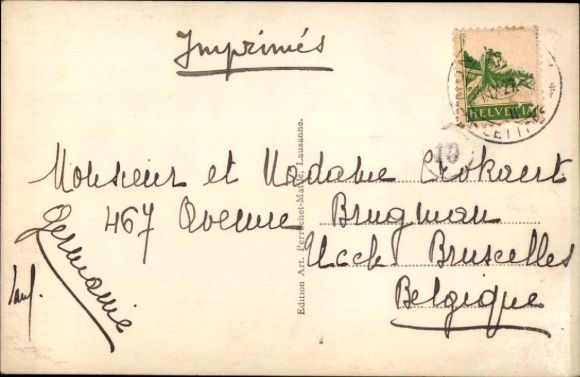 Imprimés
HELVETIA
10
Monsieur et Madame Crokaert
467 Avenue Brugman
Uccle Bruxelles
Belgique
Germaine
Edition Art. Perrochet-Matile, Lausanne.